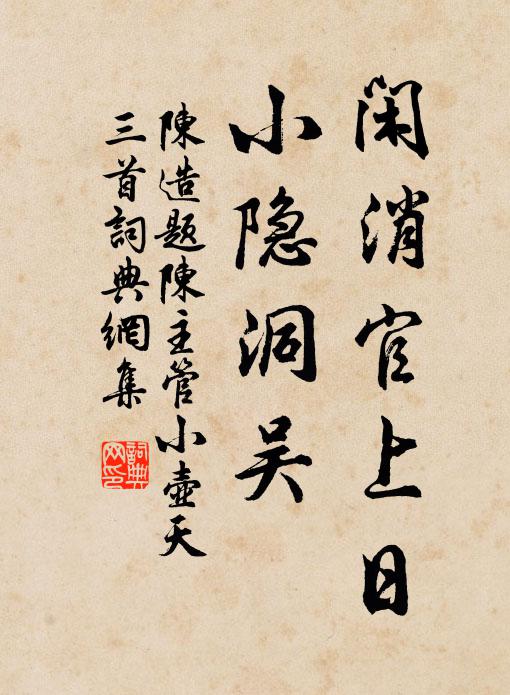 闲消官上日
小隐洞吴
陳造題陳主管小壺天
三首詞典網集
詞典網印